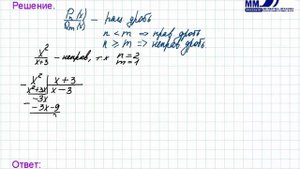 Решение.
ММ
Pₙ(x)/Qₘ(x) – рац. дробь
n < m ⇒ прав. дробь
n ≥ m ⇒ неправ. дробь.
x²/(x+3) – неправ, т.к n=2 m=1
x² | x+3
x²+3x | x-3
-3x
-3x-9
Ответ: